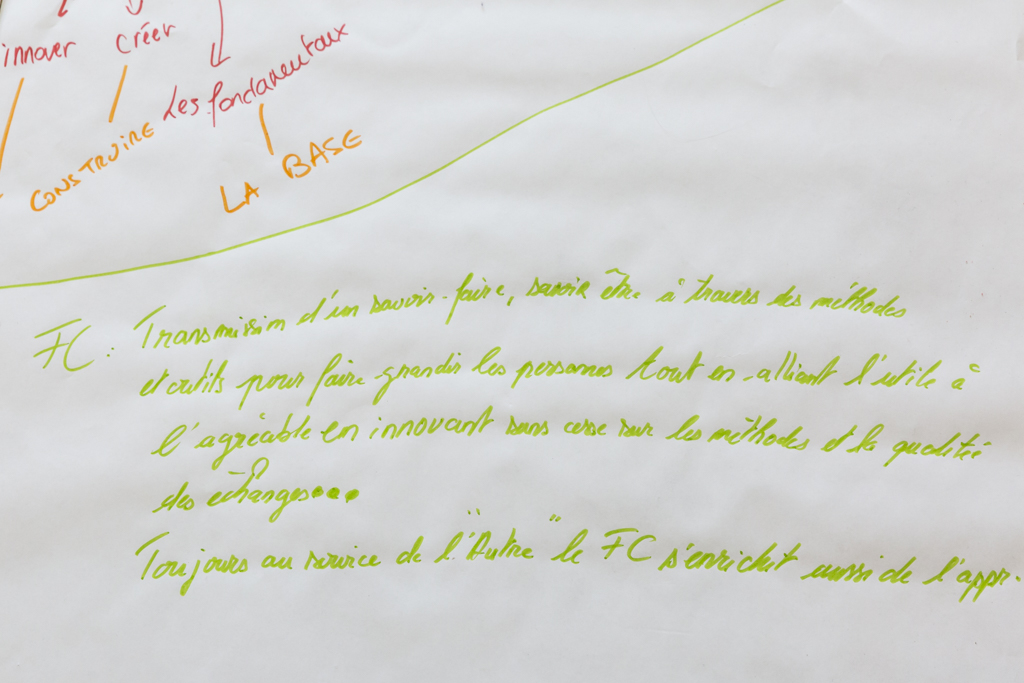 innover créer
Les fondamentaux
CONSTRUIRE
LA BASE
FC: Transmission d'un savoir-faire, savoir être à travers des méthodes
et outils pour faire grandir les personnes tout en alliant l'utile à
l'agréable en innovant sans cesse sur les méthodes et la qualitéé
des échanges...
Toujours au service de l'"Autre" le FC s'enrichit aussi de l'appr.